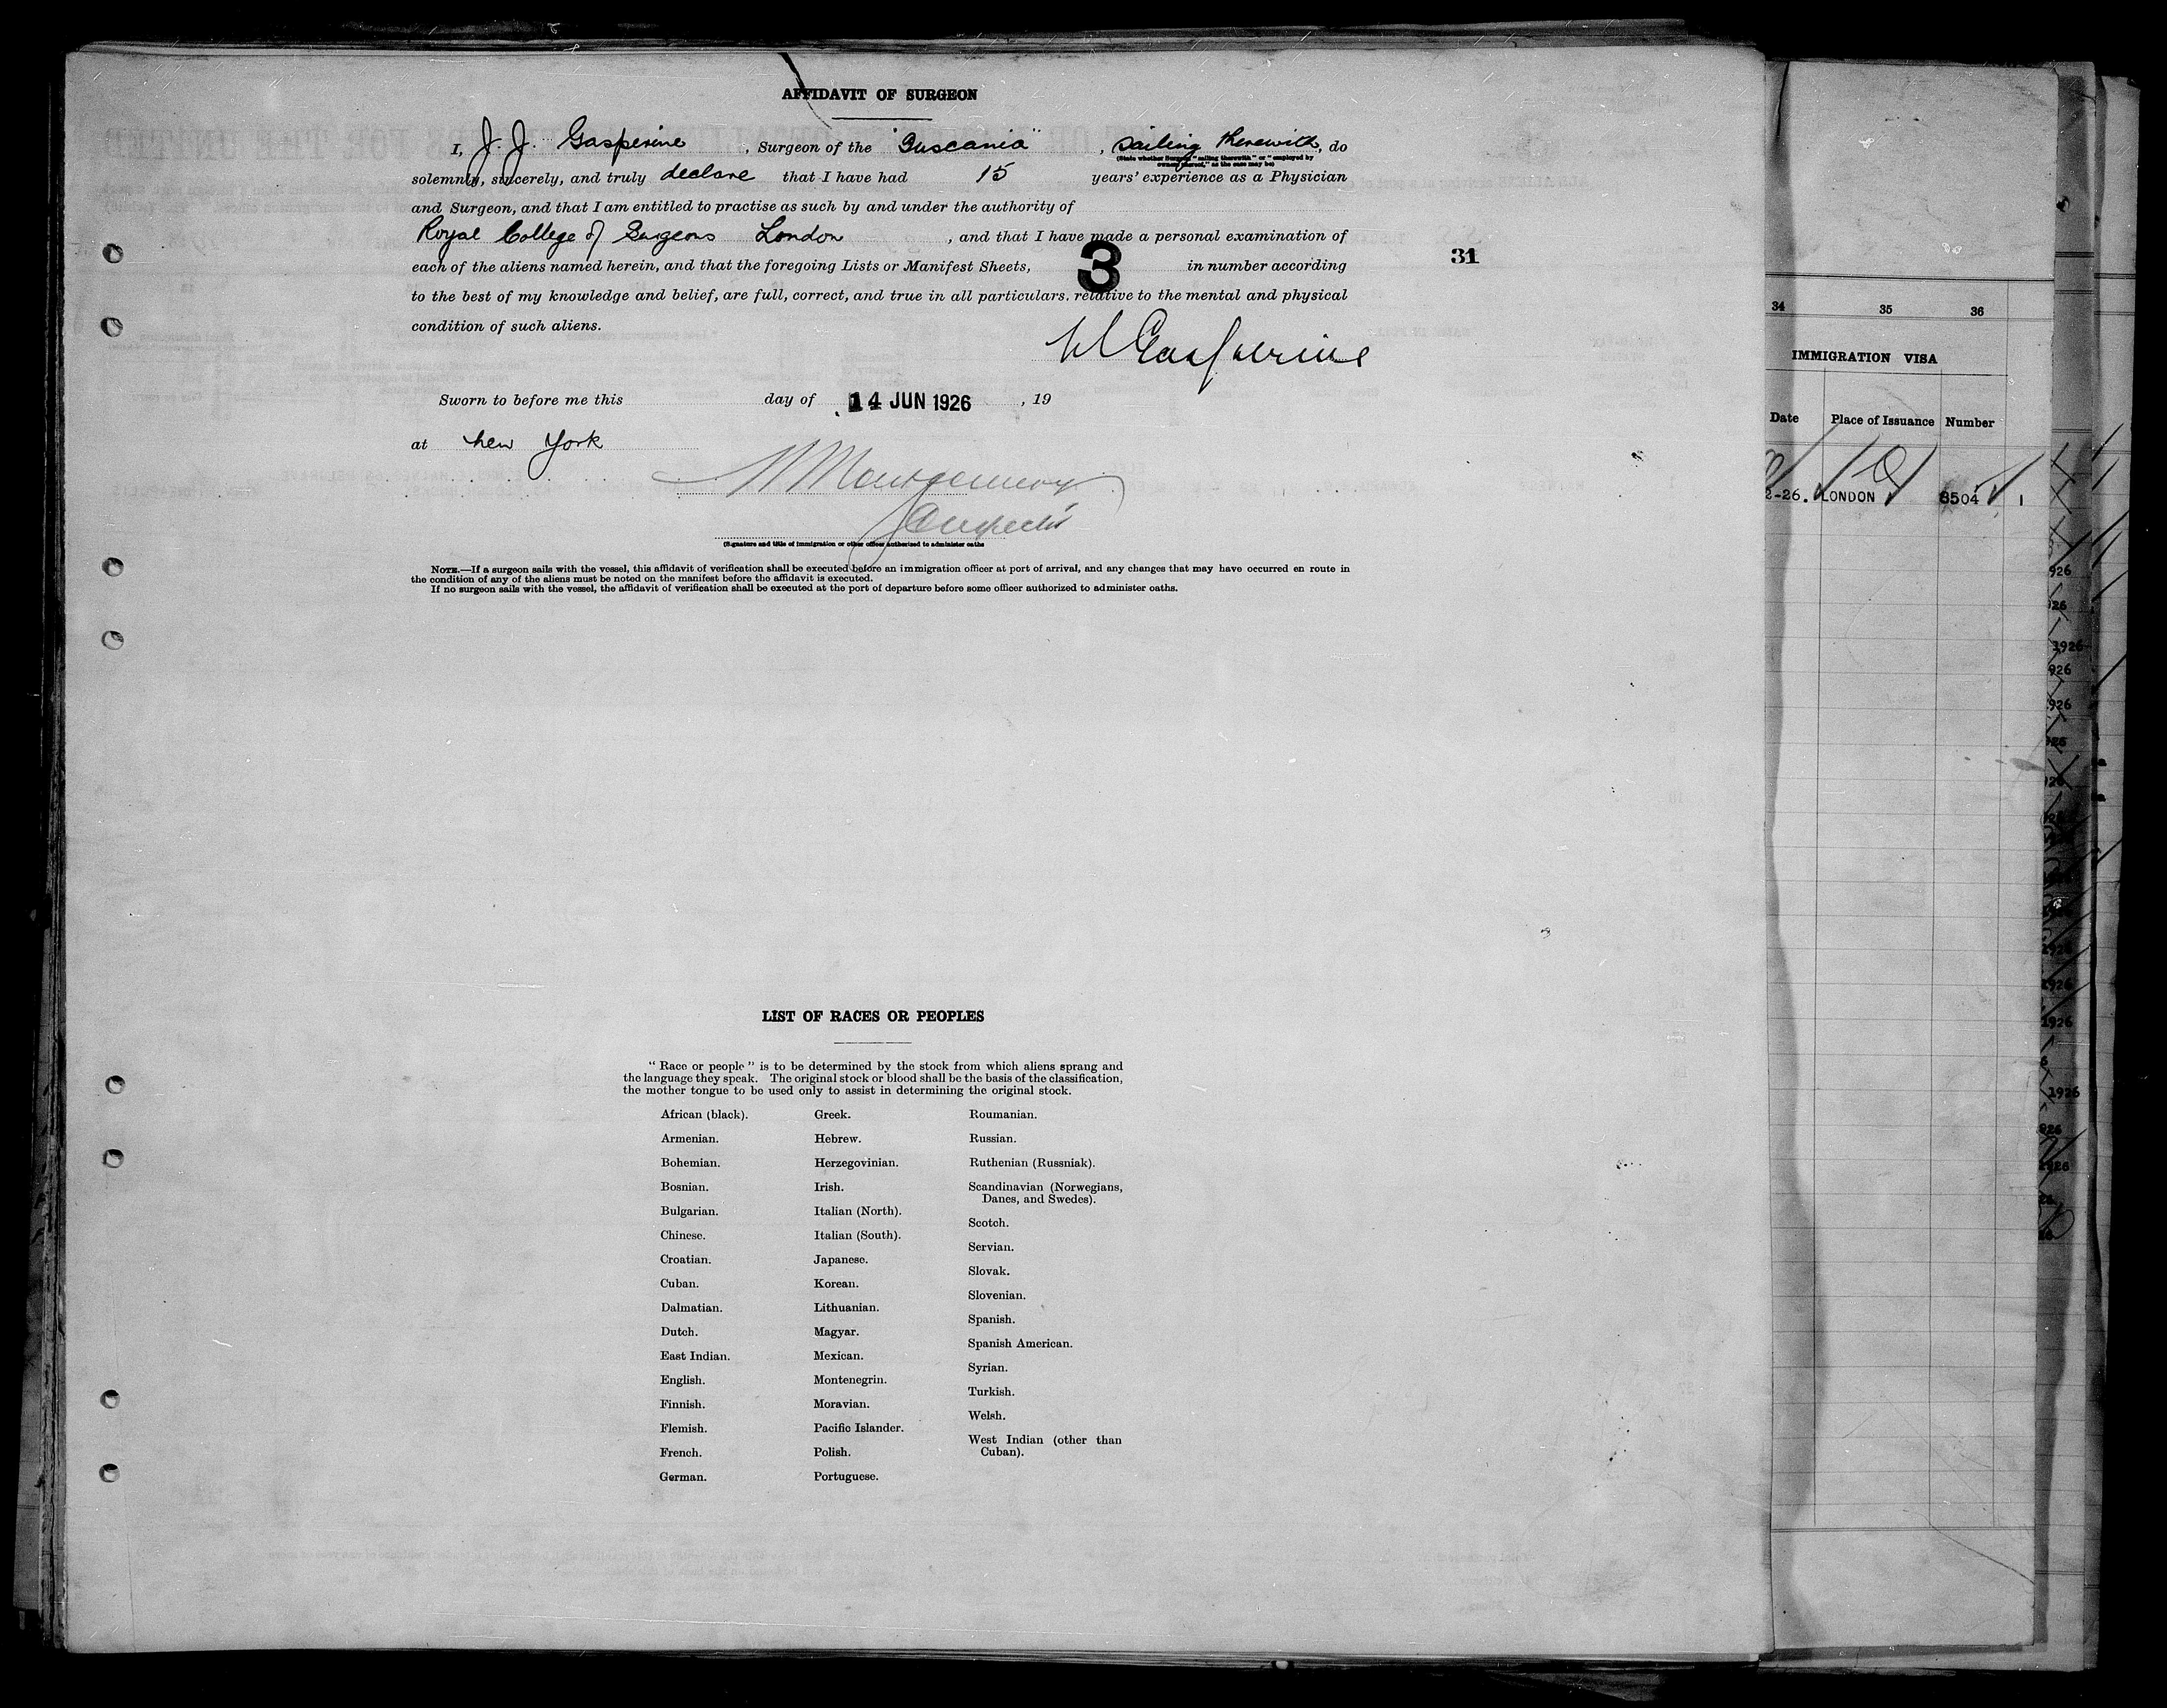 AFFIDAVIT OF SURGEON
I, J. J. Gasperine, Surgeon of the "Tuscania", sailing therewith, do
(State whether Surgeon "sailing therewith" or "employed by
owners thereof," as the case may be)
solemnly, sincerely, and truly declare that I have had 15 years' experience as a Physician
and Surgeon, and that I am entitled to practise as such by and under the authority of
Royal College of Surgeons London, and that I have made a personal examination of
each of the aliens named herein, and that the foregoing Lists or Manifest Sheets, 3 in number according
31
to the best of my knowledge and belief, are full, correct, and true in all particulars. relative to the mental and physical
condition of such aliens.
Gasperine
Sworn to before me this day of 14 JUN 1926, 19
at New York
Montgomery
Inspector
(Signature and title of immigration or other officer authorized to administer oaths
NOTE.—If a surgeon sails with the vessel, this affidavit of verification shall be executed before an immigration officer at port of arrival, and any changes that may have occurred en route in
the condition of any of the aliens must be noted on the manifest before the affidavit is executed.
If no surgeon sails with the vessel, the affidavit of verification shall be executed at the port of departure before some officer authorized to administer oaths.
LIST OF RACES OR PEOPLES
"Race or people" is to be determined by the stock from which aliens sprang and
the language they speak. The original stock or blood shall be the basis of the classification,
the mother tongue to be used only to assist in determining the original stock.
African (black).
Armenian.
Bohemian.
Bosnian.
Bulgarian.
Chinese.
Croatian.
Cuban.
Dalmatian.
Dutch.
East Indian.
English.
Finnish.
Flemish.
French.
German.
Greek.
Hebrew.
Herzegovinian.
Irish.
Italian (North).
Italian (South).
Japanese.
Korean.
Lithuanian.
Magyar.
Mexican.
Montenegrin.
Moravian.
Pacific Islander.
Polish.
Portuguese.
Roumanian.
Russian.
Ruthenian (Russniak).
Scandinavian (Norwegians,
Danes, and Swedes).
Scotch.
Servian.
Slovak.
Slovenian.
Spanish.
Spanish American.
Syrian.
Turkish.
Welsh.
West Indian (other than
Cuban).
34 35 36
IMMIGRATION VISA
Date Place of Issuance Number
2-26. LONDON 8504 1